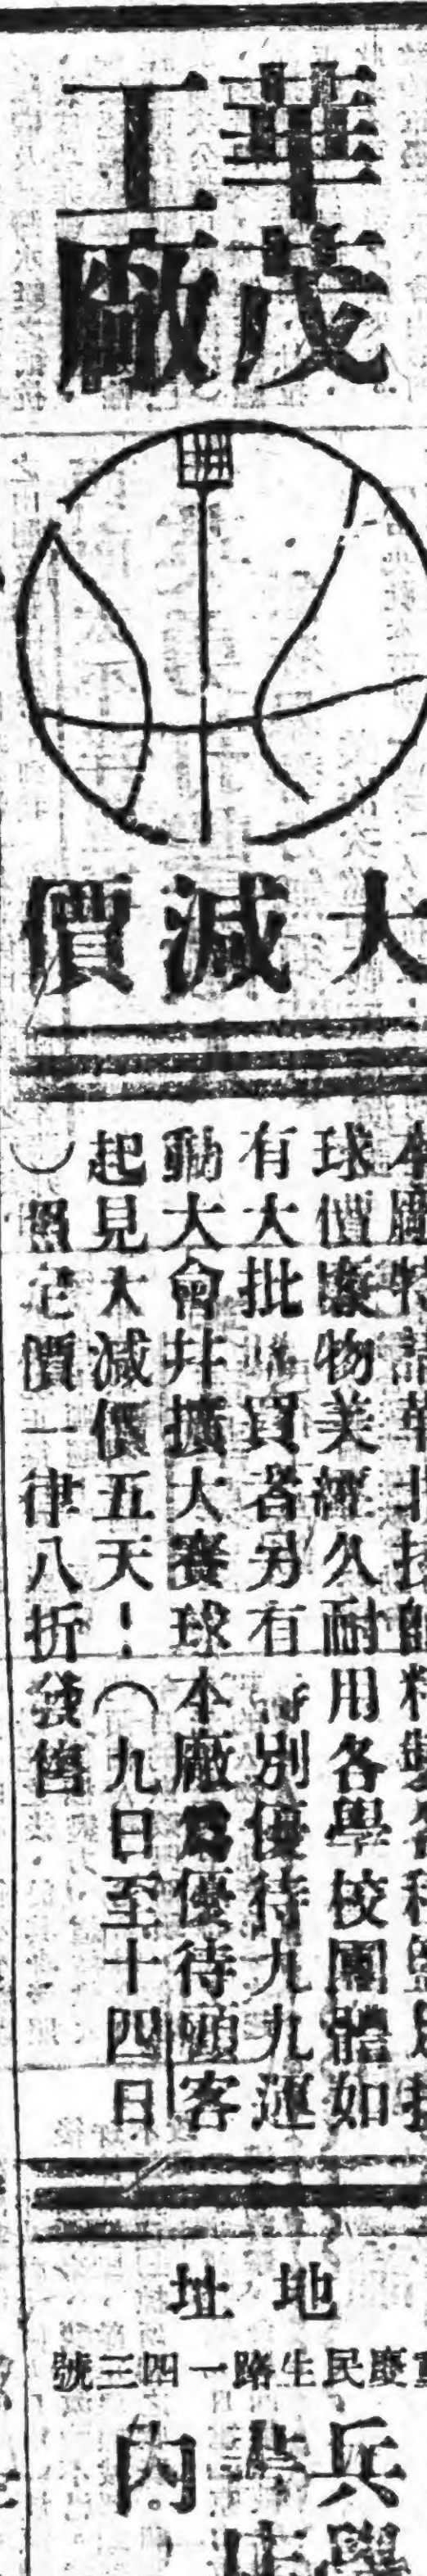 華茂
工廠
大減價
本廠特請華北技師精製各種籃足排
球價廉物美經久耐用各學校團體如
有大批購買者另有特別優待九九運
動大會幷擴大賽球本廠為優待顧客
起見大減價五天！（九日至十四日
）照定價一律八折發售
地址
重慶民生路一四三號
兵學書店內